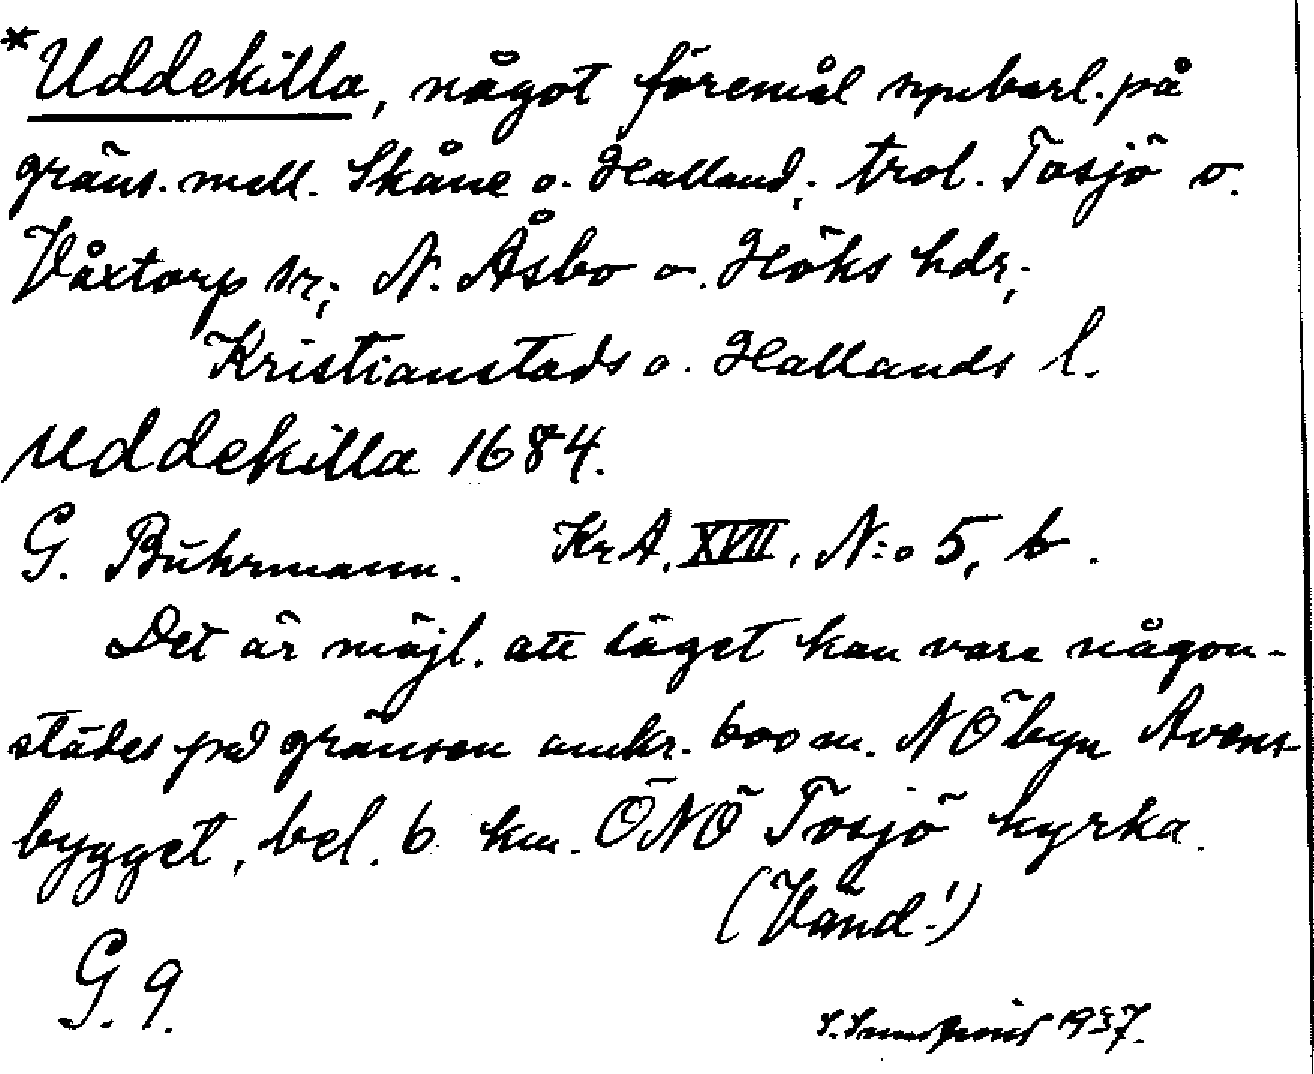 *Uddekilla, något föremål synbarl. på
gräns. mell. Skåne o. Halland, trol. Tosjö o.
Våxtorp sr; N. Åsbo o. Höks hdr;
Kristianstads o. Hallands l.
Uddekilla 1684.
G. Buhrmann. Kr A. XVII, N:o 5, b.
Det är möjl. att läget kan vara någon-
städes på gränsen omkr. 600 m. NÖ byn Avens-
bygget, bel. 6 km. ÖNÖ Tosjö kyrka.
(Vänd!)
G. 9.
1937.